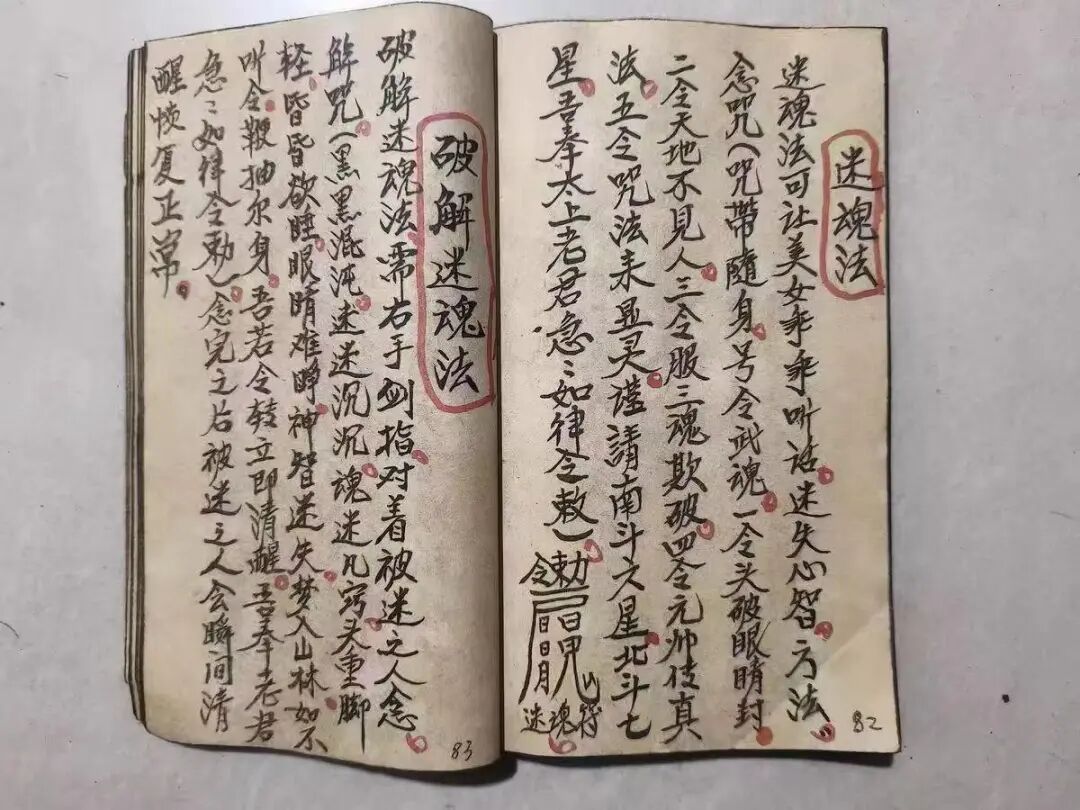 迷魂法
迷魂法可让美女乖乖听话。迷失心智。方法。
念咒(咒带隨身。号令武魂。一令头破眼睛封
二令天地不見人。三令服三魂欺破。四令元帅传真
法。五令咒法来显灵。谨請南斗六星。北斗七
星。吾奉太上老君急:如律令敕)。
勅令
迷魂符
82
破解迷魂法
破解迷魂法需右手剑指。对着被迷之人念。
解咒。(黑黑混沌。迷迷沉沉。魂迷凡窍。头重脚
轻。昏昏欲睡。眼睛难睁。神智迷失。梦入山林。如不
听令。鞭抽尔身。吾若令转立即清醒。吾奉老君
急:如律令勅)。念完之后被迷之人会瞬间清
醒恢复正常。
83